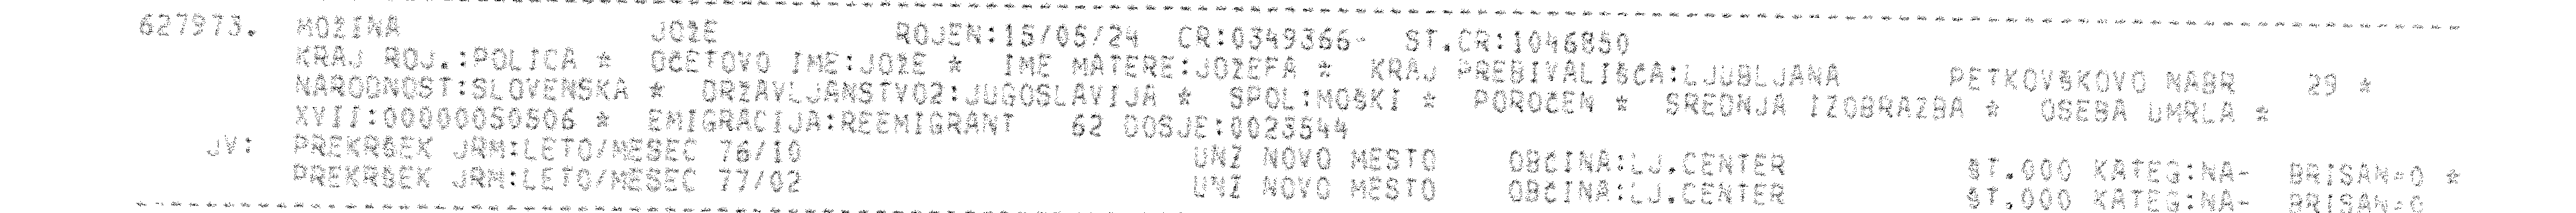 627973. MOŽINA JOŽE ROJEN:15/05/24 CR:0349366- ST.CR:1046850
KRAJ ROJ.:POLICA * OČETOVO IME:JOŽE * IME MATERE:JOŽEFA * KRAJ PREBIVALIŠČA:LJUBLJANA PETKOVŠKOVO NABR 29 *
NARODNOST:SLOVENSKA * DRŽAVLJANSTVO2:JUGOSLAVIJA * SPOL:MOŠKI * POROČEN * SREDNJA IZOBRAZBA * OSEBA UMRLA *
XVII:00000050506 * EMIGRACIJA:REEMIGRANT 62 DOSJE:0023544
JV: PREKRŠEK JRM:LETO/MESEC 76/10 UNZ NOVO MESTO OBČINA:LJ.CENTER ŠT.000 KATEG:NA- BRISAN=0 *
PREKRŠEK JRM:LETO/MESEC 77/02 UNZ NOVO MESTO OBČINA:LJ.CENTER ŠT.000 KATEG:NA- BRISAN=0